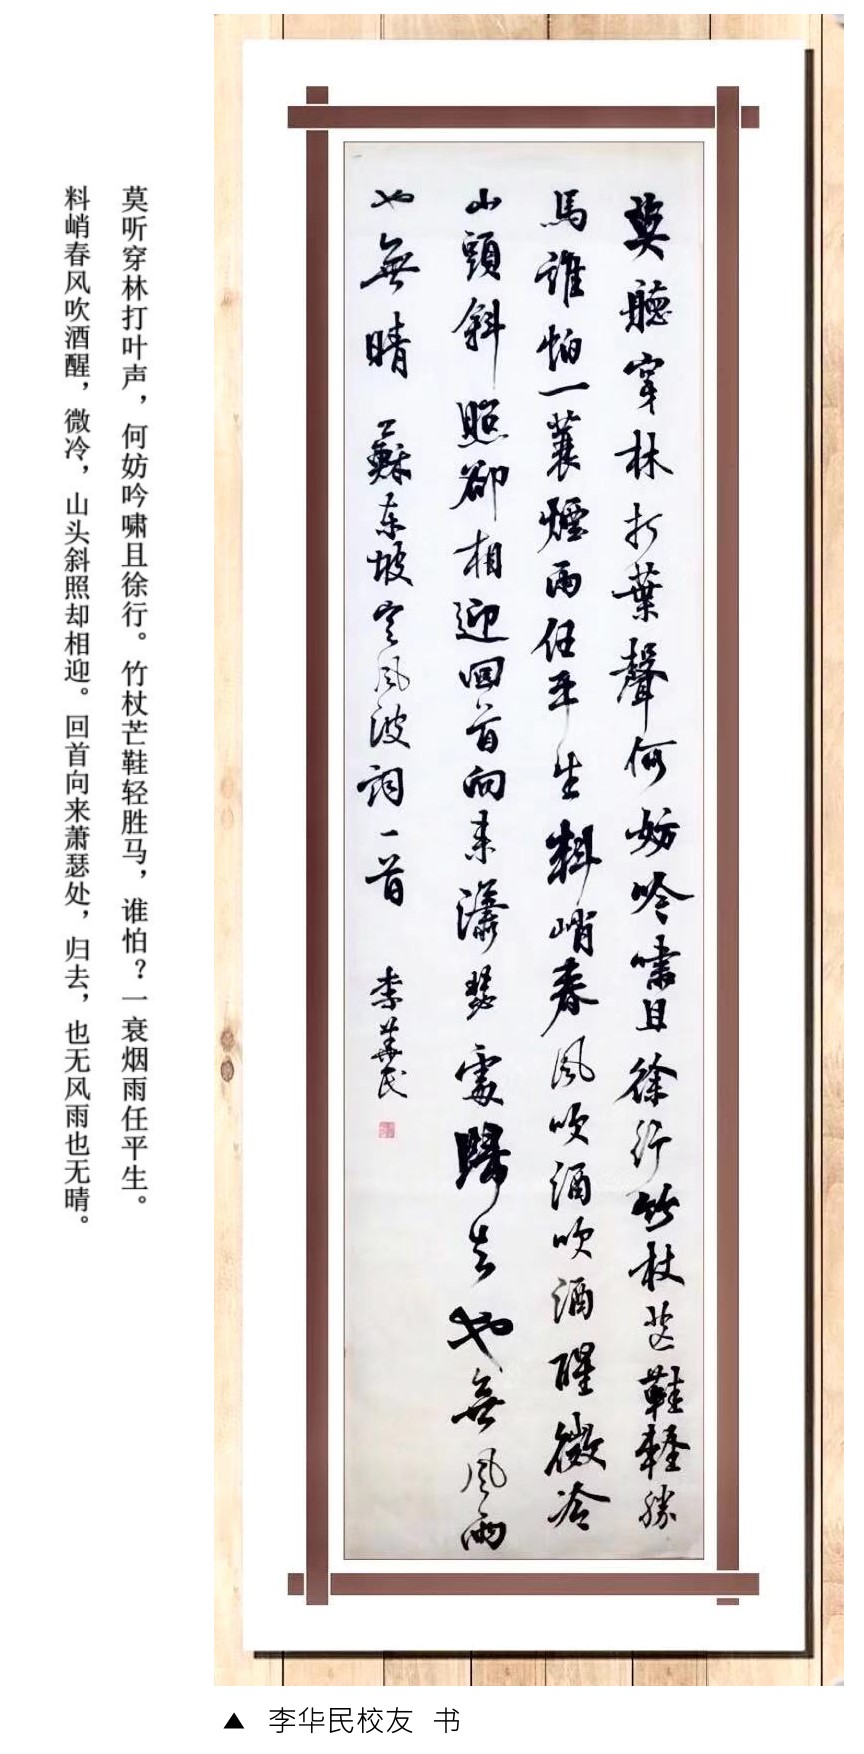 莫聽穿林打葉聲何妨吟嘯且徐行竹杖芒鞋輕勝
馬誰怕一蓑煙雨任平生料峭春風吹酒吹酒醒微冷
山頭斜照卻相迎回首向來瀟瑟處歸去也無風雨
也無晴 蘇东坡定風波詞一首 李華民
莫听穿林打叶声，何妨吟啸且徐行。竹杖芒鞋轻胜马，谁怕？一衰烟雨任平生。
料峭春风吹酒醒，微冷，山头斜照却相迎。回首向来萧瑟处，归去，也无风雨也无晴。
▲ 李华民校友 书